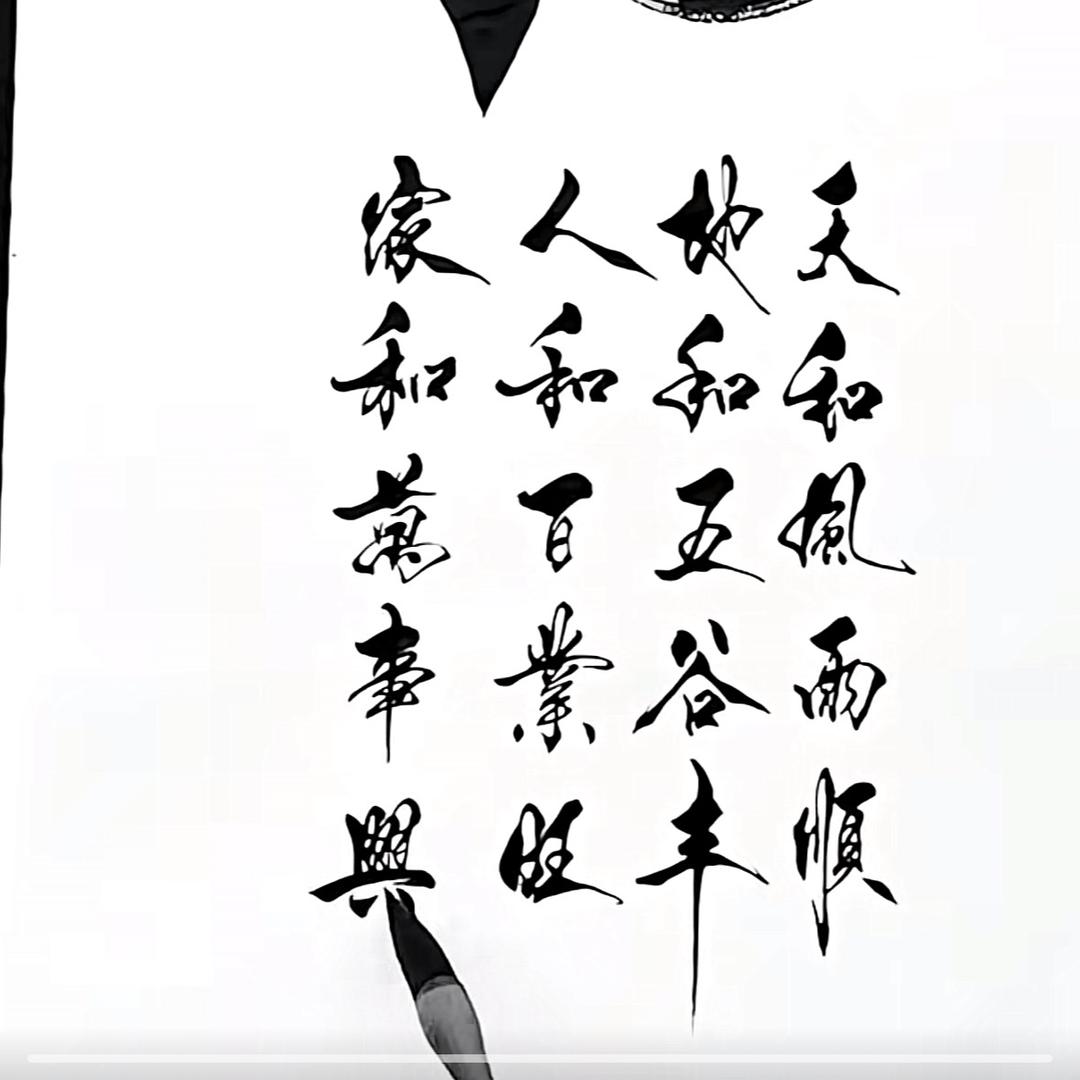 天和風雨順
地和五谷丰
人和百業旺
家和萬事興